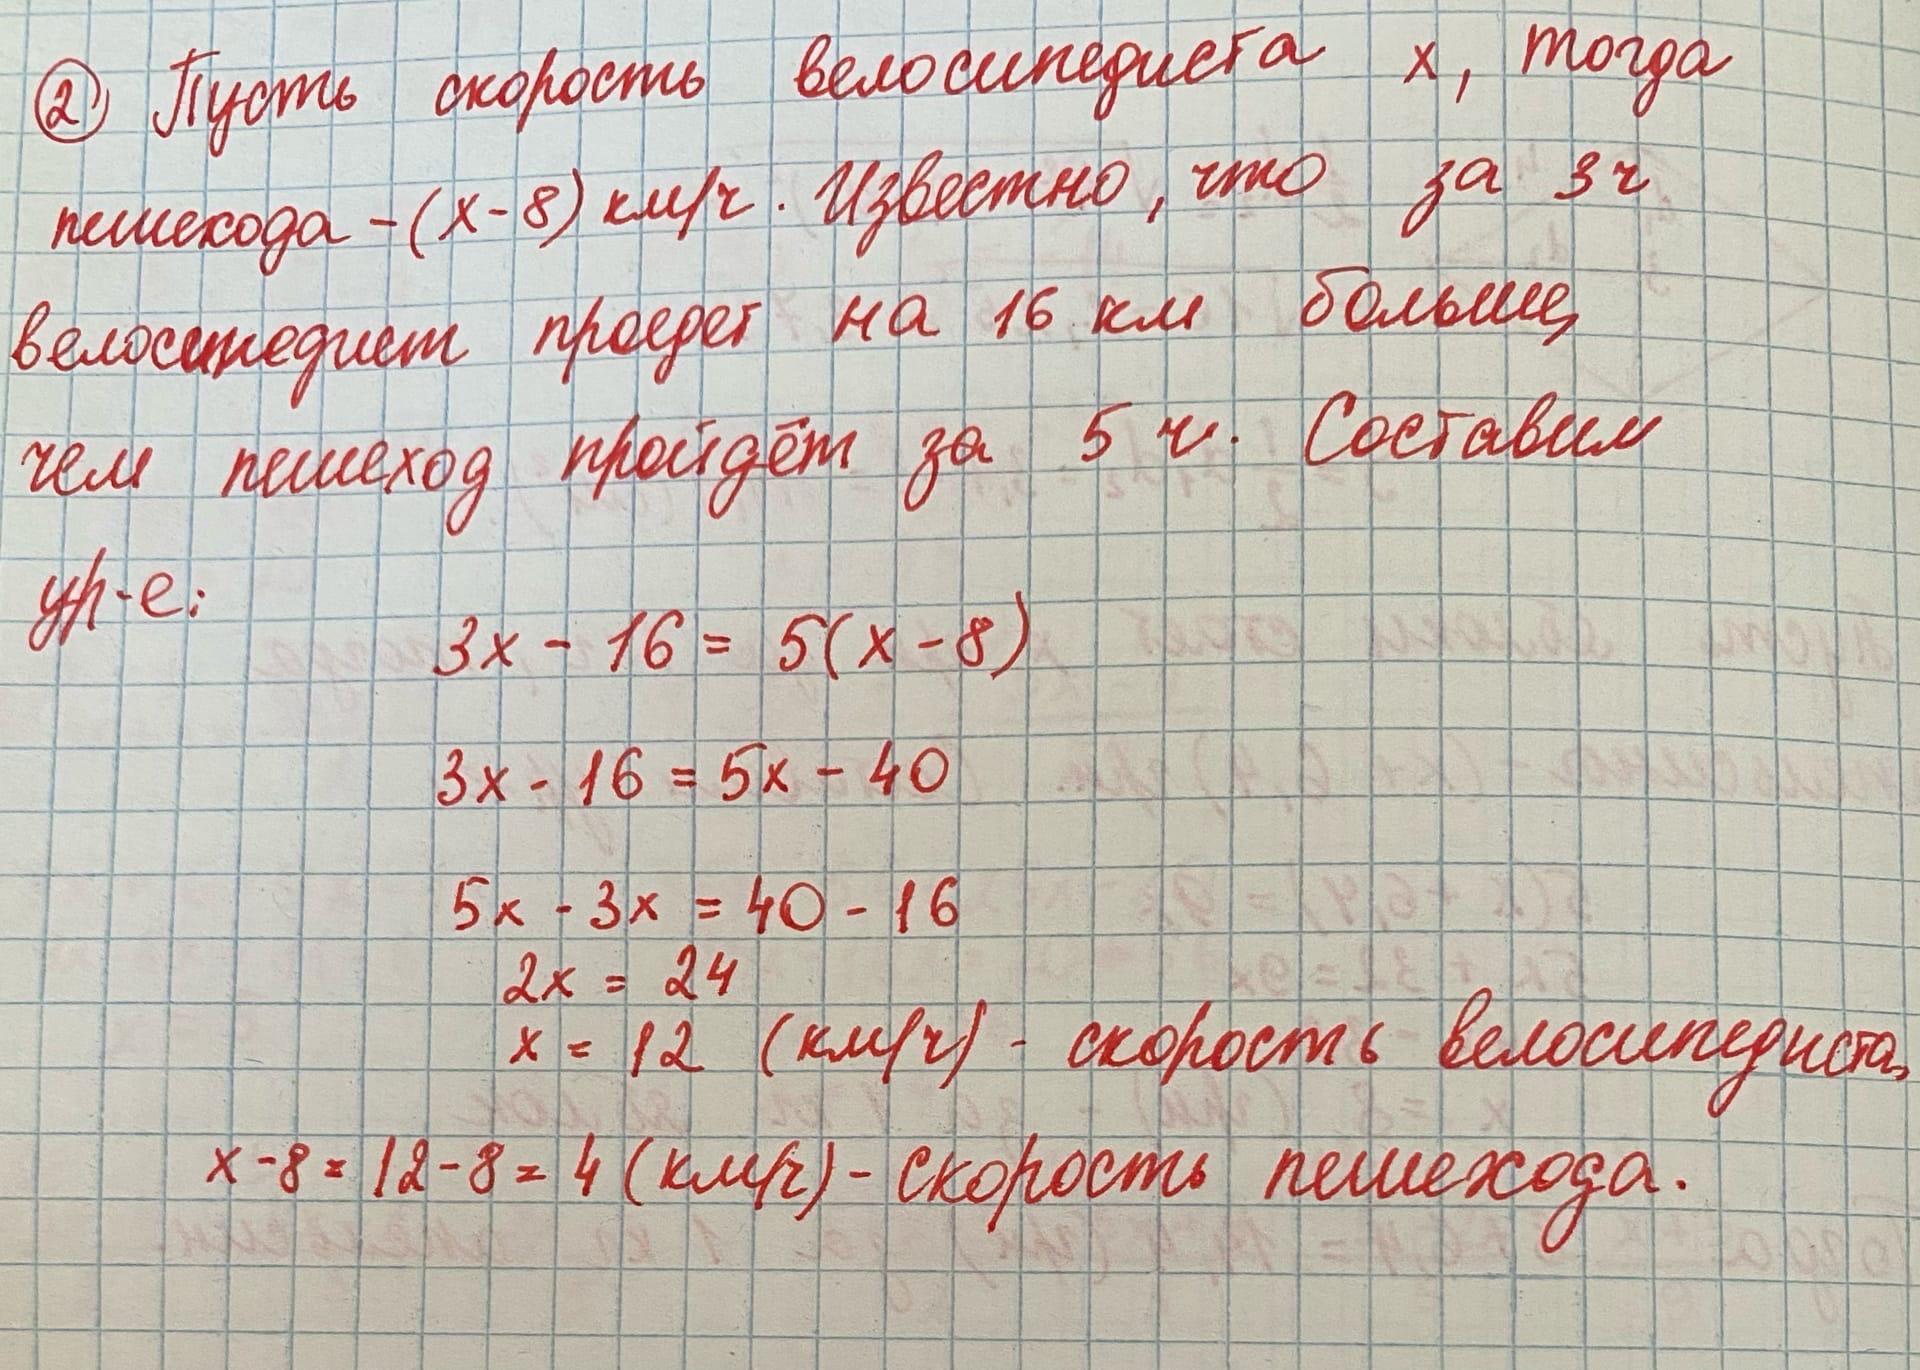 ② Пусть скорость велосипедиста х, тогда
пешехода - (х - 8) км/ч. Известно, что за 3ч
велосипедист проедет на 16 км больше,
чем пешеход пройдёт за 5 ч. Составим
ур-е:
3х - 16 = 5(х - 8)
3х - 16 = 5х - 40
5х - 3х = 40 - 16
2х = 24
х = 12 (км/ч) - скорость велосипедиста,
х - 8 = 12 - 8 = 4 (км/ч) - скорость пешехода.